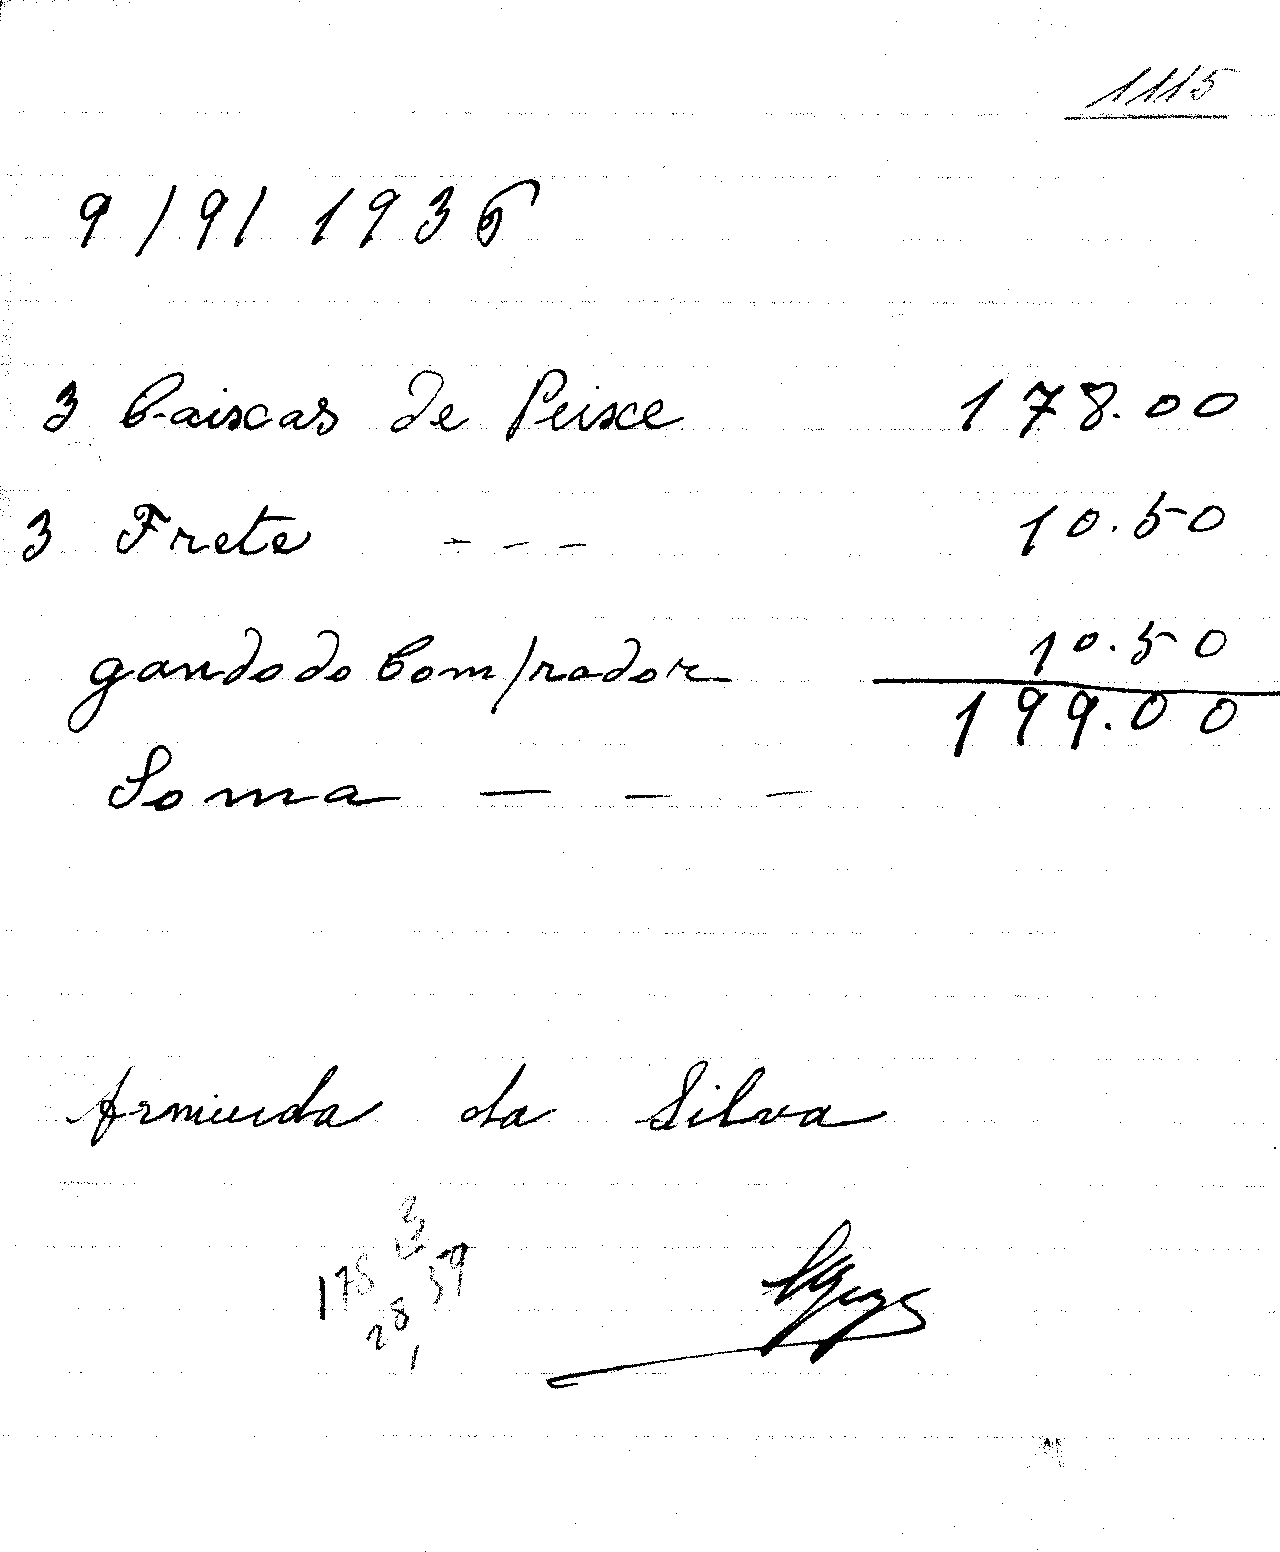 1115
9/9/1936
3 Caiscas de Peisce 178.00
3 Frete --- 10.50
gando do Comprador 10.50
199.00
Soma — — —
Arminda da Silva
3
178 59
28